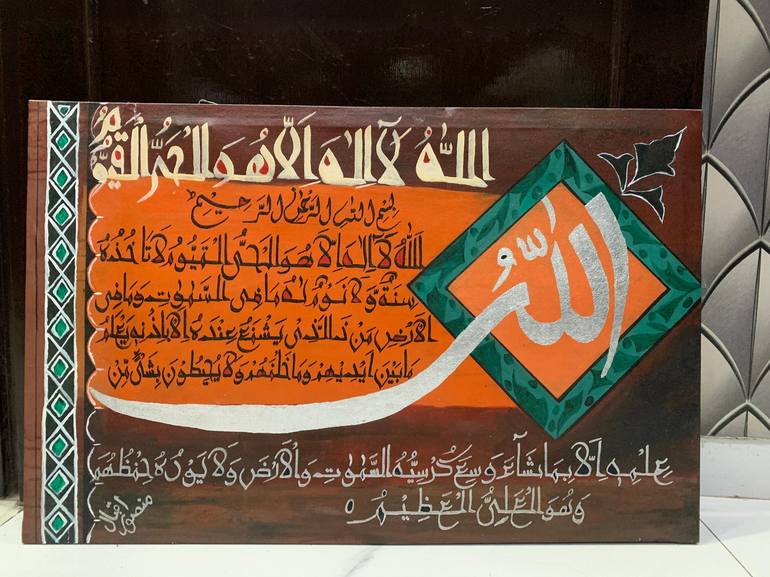 الله لا اله الا هو الحي القيوم
بسم الله الرحمن الرحيم
الله لا اله الا هو الحي القيوم لا تاخذه
سنة ولا نوم له ما في السموت وما في
الارض من ذا الذي يشفع عنده الا باذنه يعلم
ما بين ايديهم وما خلفهم ولا يحيطون بشيء من
الله
علمه الا بما شاء وسع كرسيه السموت والارض ولا يوده حفظهما
وهو العلي العظيم
منصور